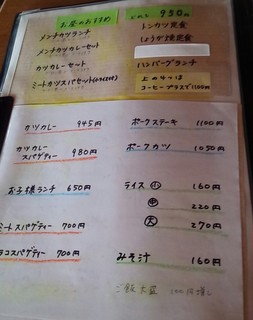 お昼のおすすめ
メンチカツランチ
メンチカツカレーセット
カツカレーセット
ミートカツスパセット
950円
トンカツ定食
しょうが焼定食
ハンバーグランチ
上の4つは
コーヒープラスで1100円
カツカレー 945円
カツカレー
スパゲティー 980円
お子様ランチ 650円
ミートスパゲティー 700円
タコスパゲティー 700円
ポークステーキ 1100円
ポークカツ 1050円
ライス 小 160円
中 220円
大 270円
みそ汁 160円
ご飯大盛 100円増し